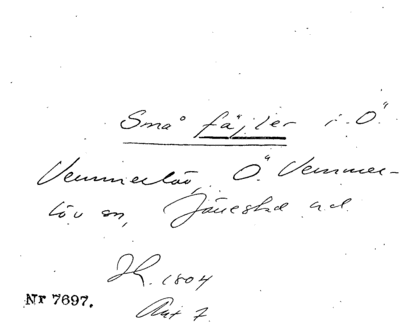 Små fäjler i Ö.
Vemmerlöv, Ö. Vemmer-
löv sn, Järrestad hd
Ih. 1804
Nr 7697.